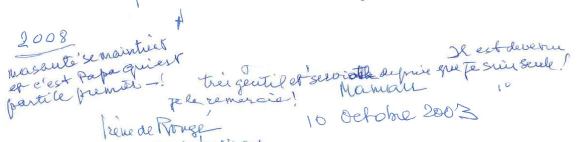 2008
ma santé se maintient
et c'est Papa qui est
parti le premier —!
Il est devenu
très gentil et serviable depuis que je suis seule!
je le remercie!
Maman
10 Octobre 2003
Irène de Rougé